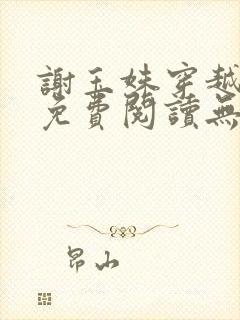 謝玉姝穿越
免費閱讀無
昂山